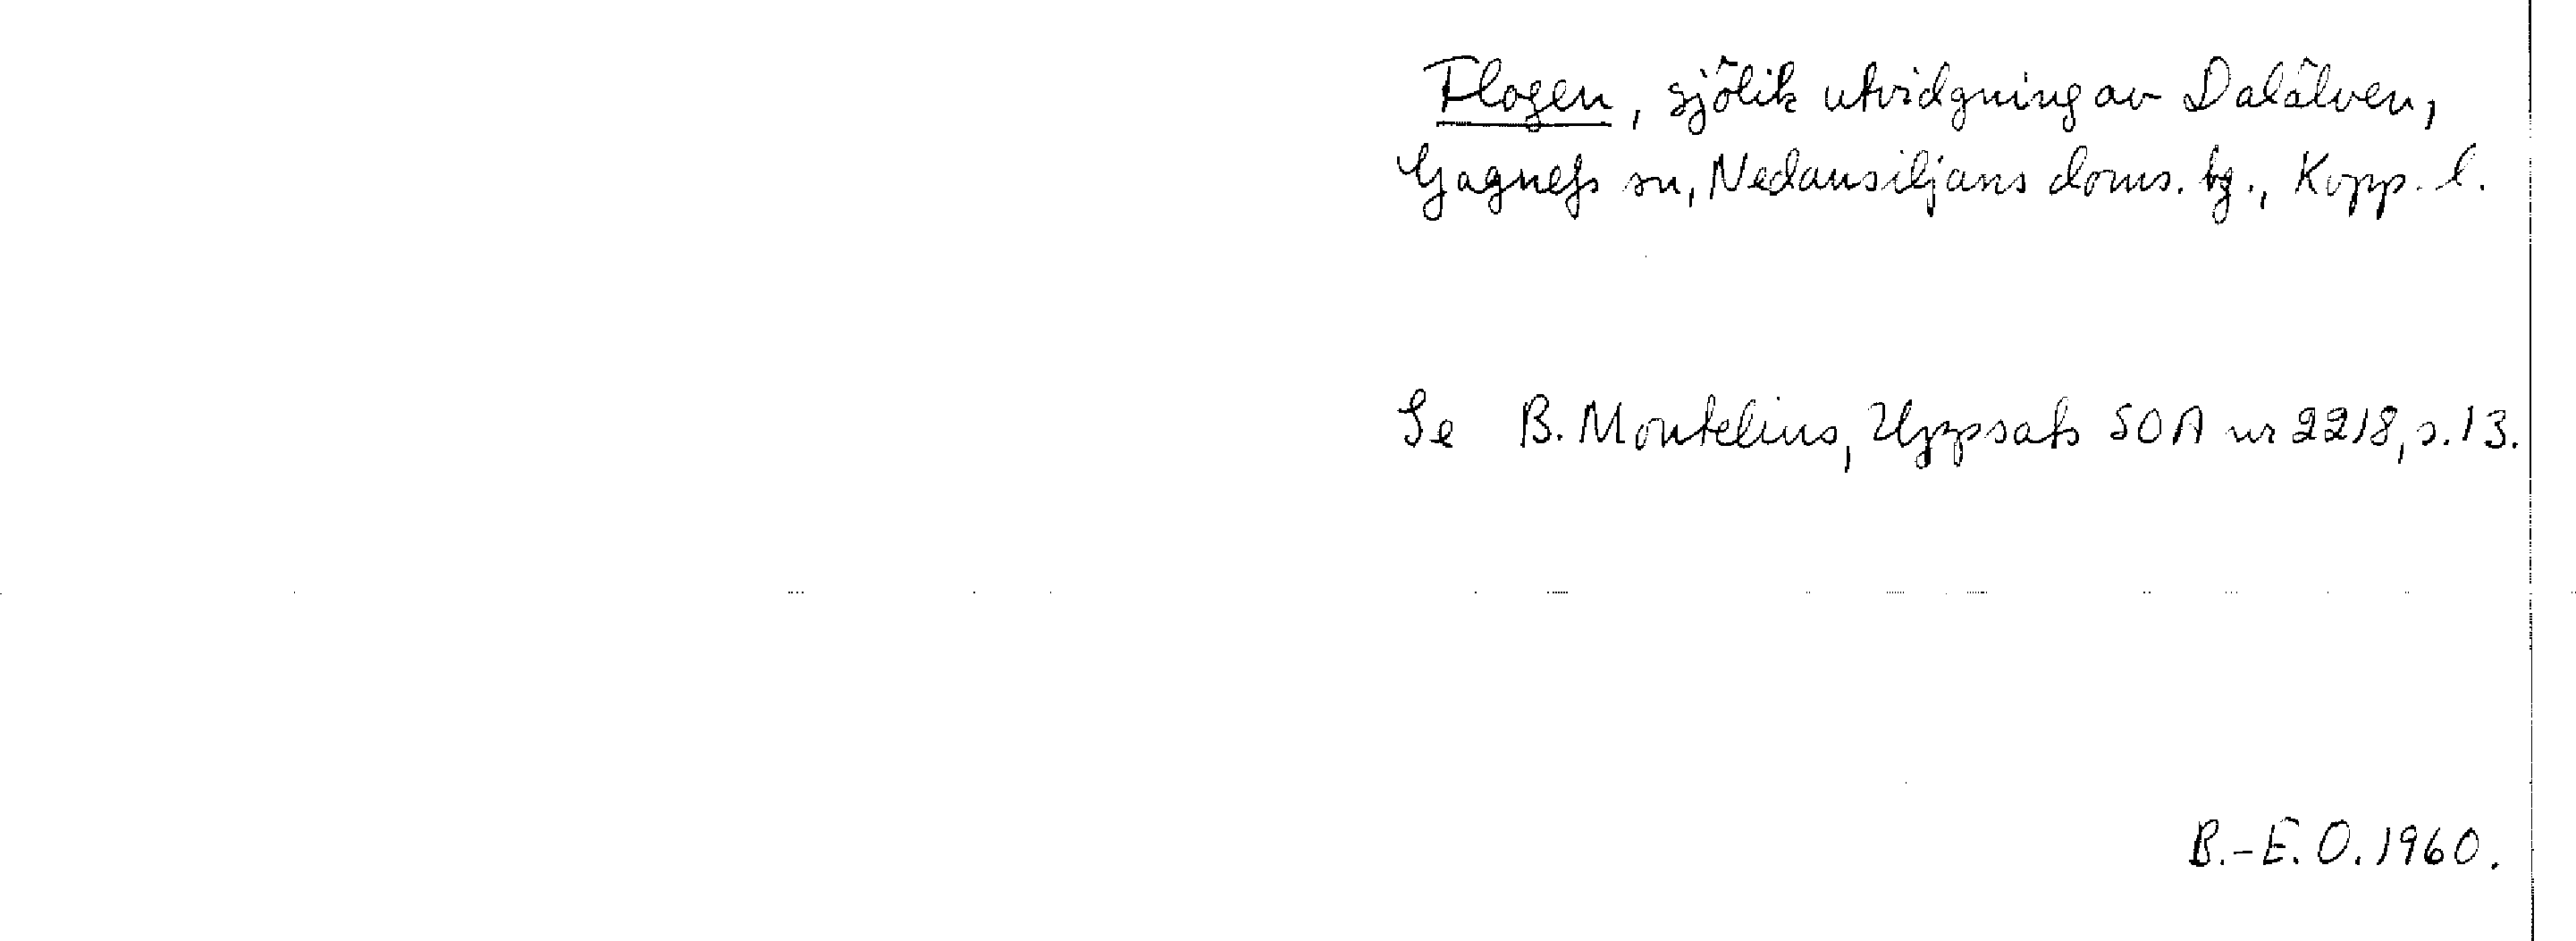 Flogen, sjölik utvidgning av Dalälven,
Gagnefs sn, Nedansiljans doms. tg., Kopp. l.
Se B. Montelius, Uppsats SOA nr 2218, s. 13.
B.-E. O. 1960.